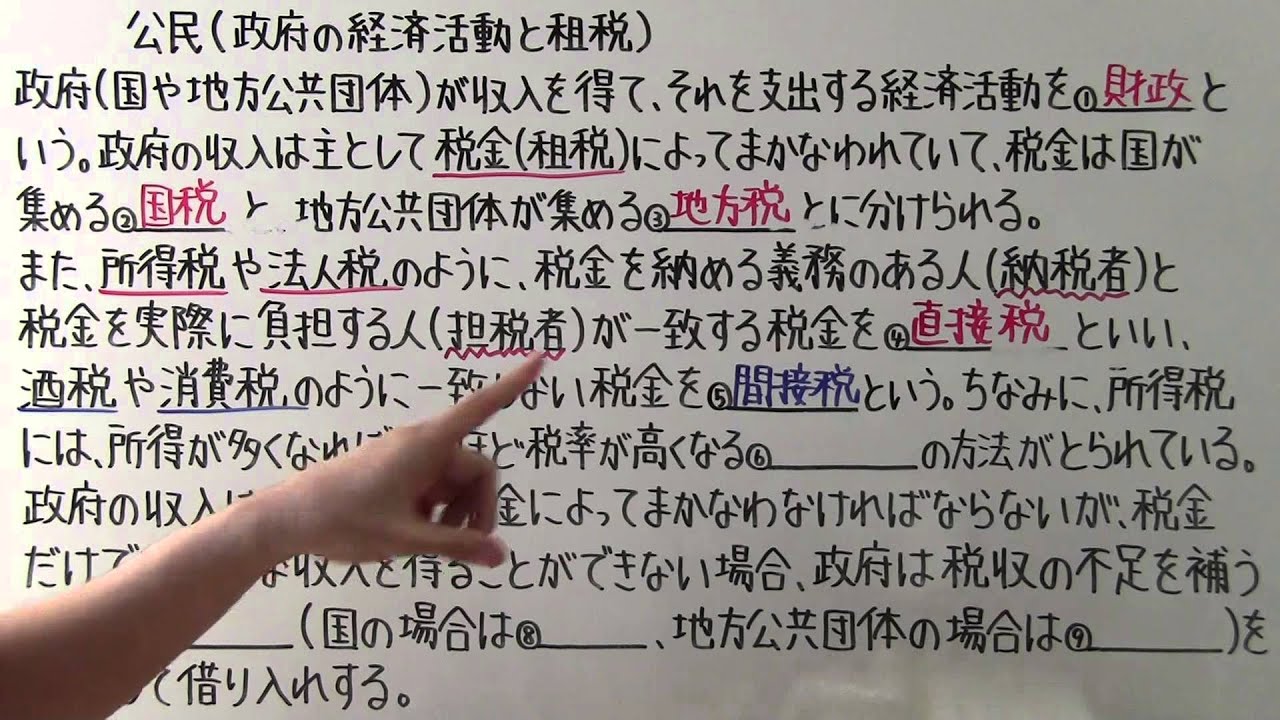 公民(政府の経済活動と租税)
政府(国や地方公共団体)が収入を得て、それを支出する経済活動を①財政と
いう。政府の収入は主として税金(租税)によってまかなわれていて、税金は国が
集める②国税と 地方公共団体が集める③地方税とに分けられる。
また、所得税や法人税のように、税金を納める義務のある人(納税者)と
税金を実際に負担する人(担税者)が一致する税金を④直接税といい、
酒税や消費税のように一致しない税金を⑤間接税という。ちなみに、所得税
には、所得が多くなれば ほど税率が高くなる⑥ の方法がとられている。
政府の収入は 金によってまかなわなければならないが、税金
だけで な収入を得ることができない場合、政府は税収の不足を補う
(国の場合は⑧ 、地方公共団体の場合は⑨ )を
て借り入れする。